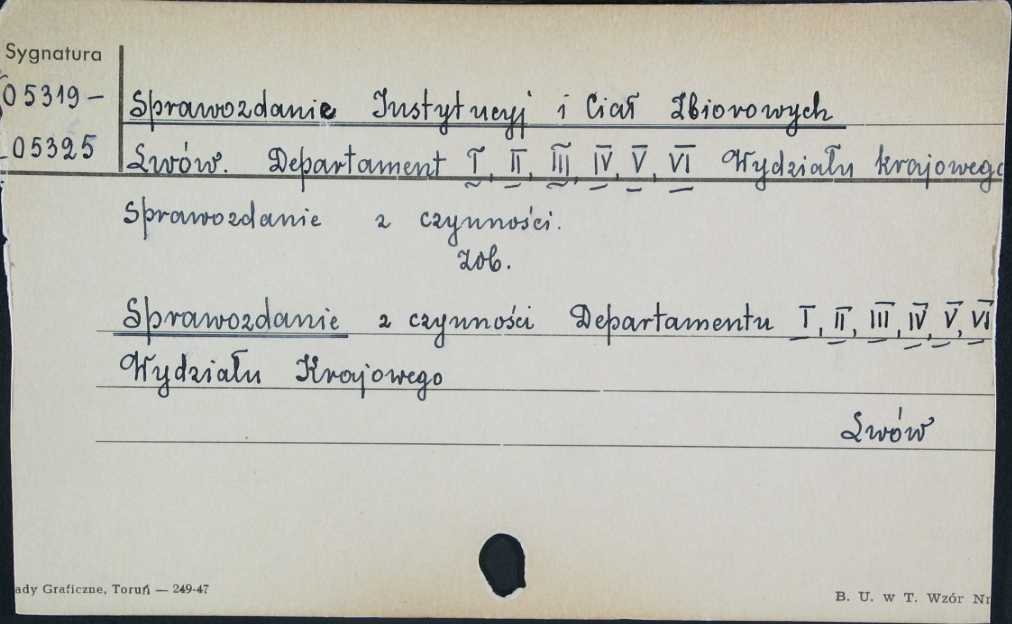 Sygnatura
05319-
05325
Sprawozdanie Instytucyj i Ciał Zbiorowych
Lwów. Departament I, II, III, IV, V, VI Wydziału krajowego
Sprawozdanie z czynności.
zob.
Sprawozdanie z czynności Departamentu I, II, III, IV, V, VI
Wydziału Krajowego
Lwów
ady Graficzne, Toruń — 249-47
B. U. w T. Wzór Nr